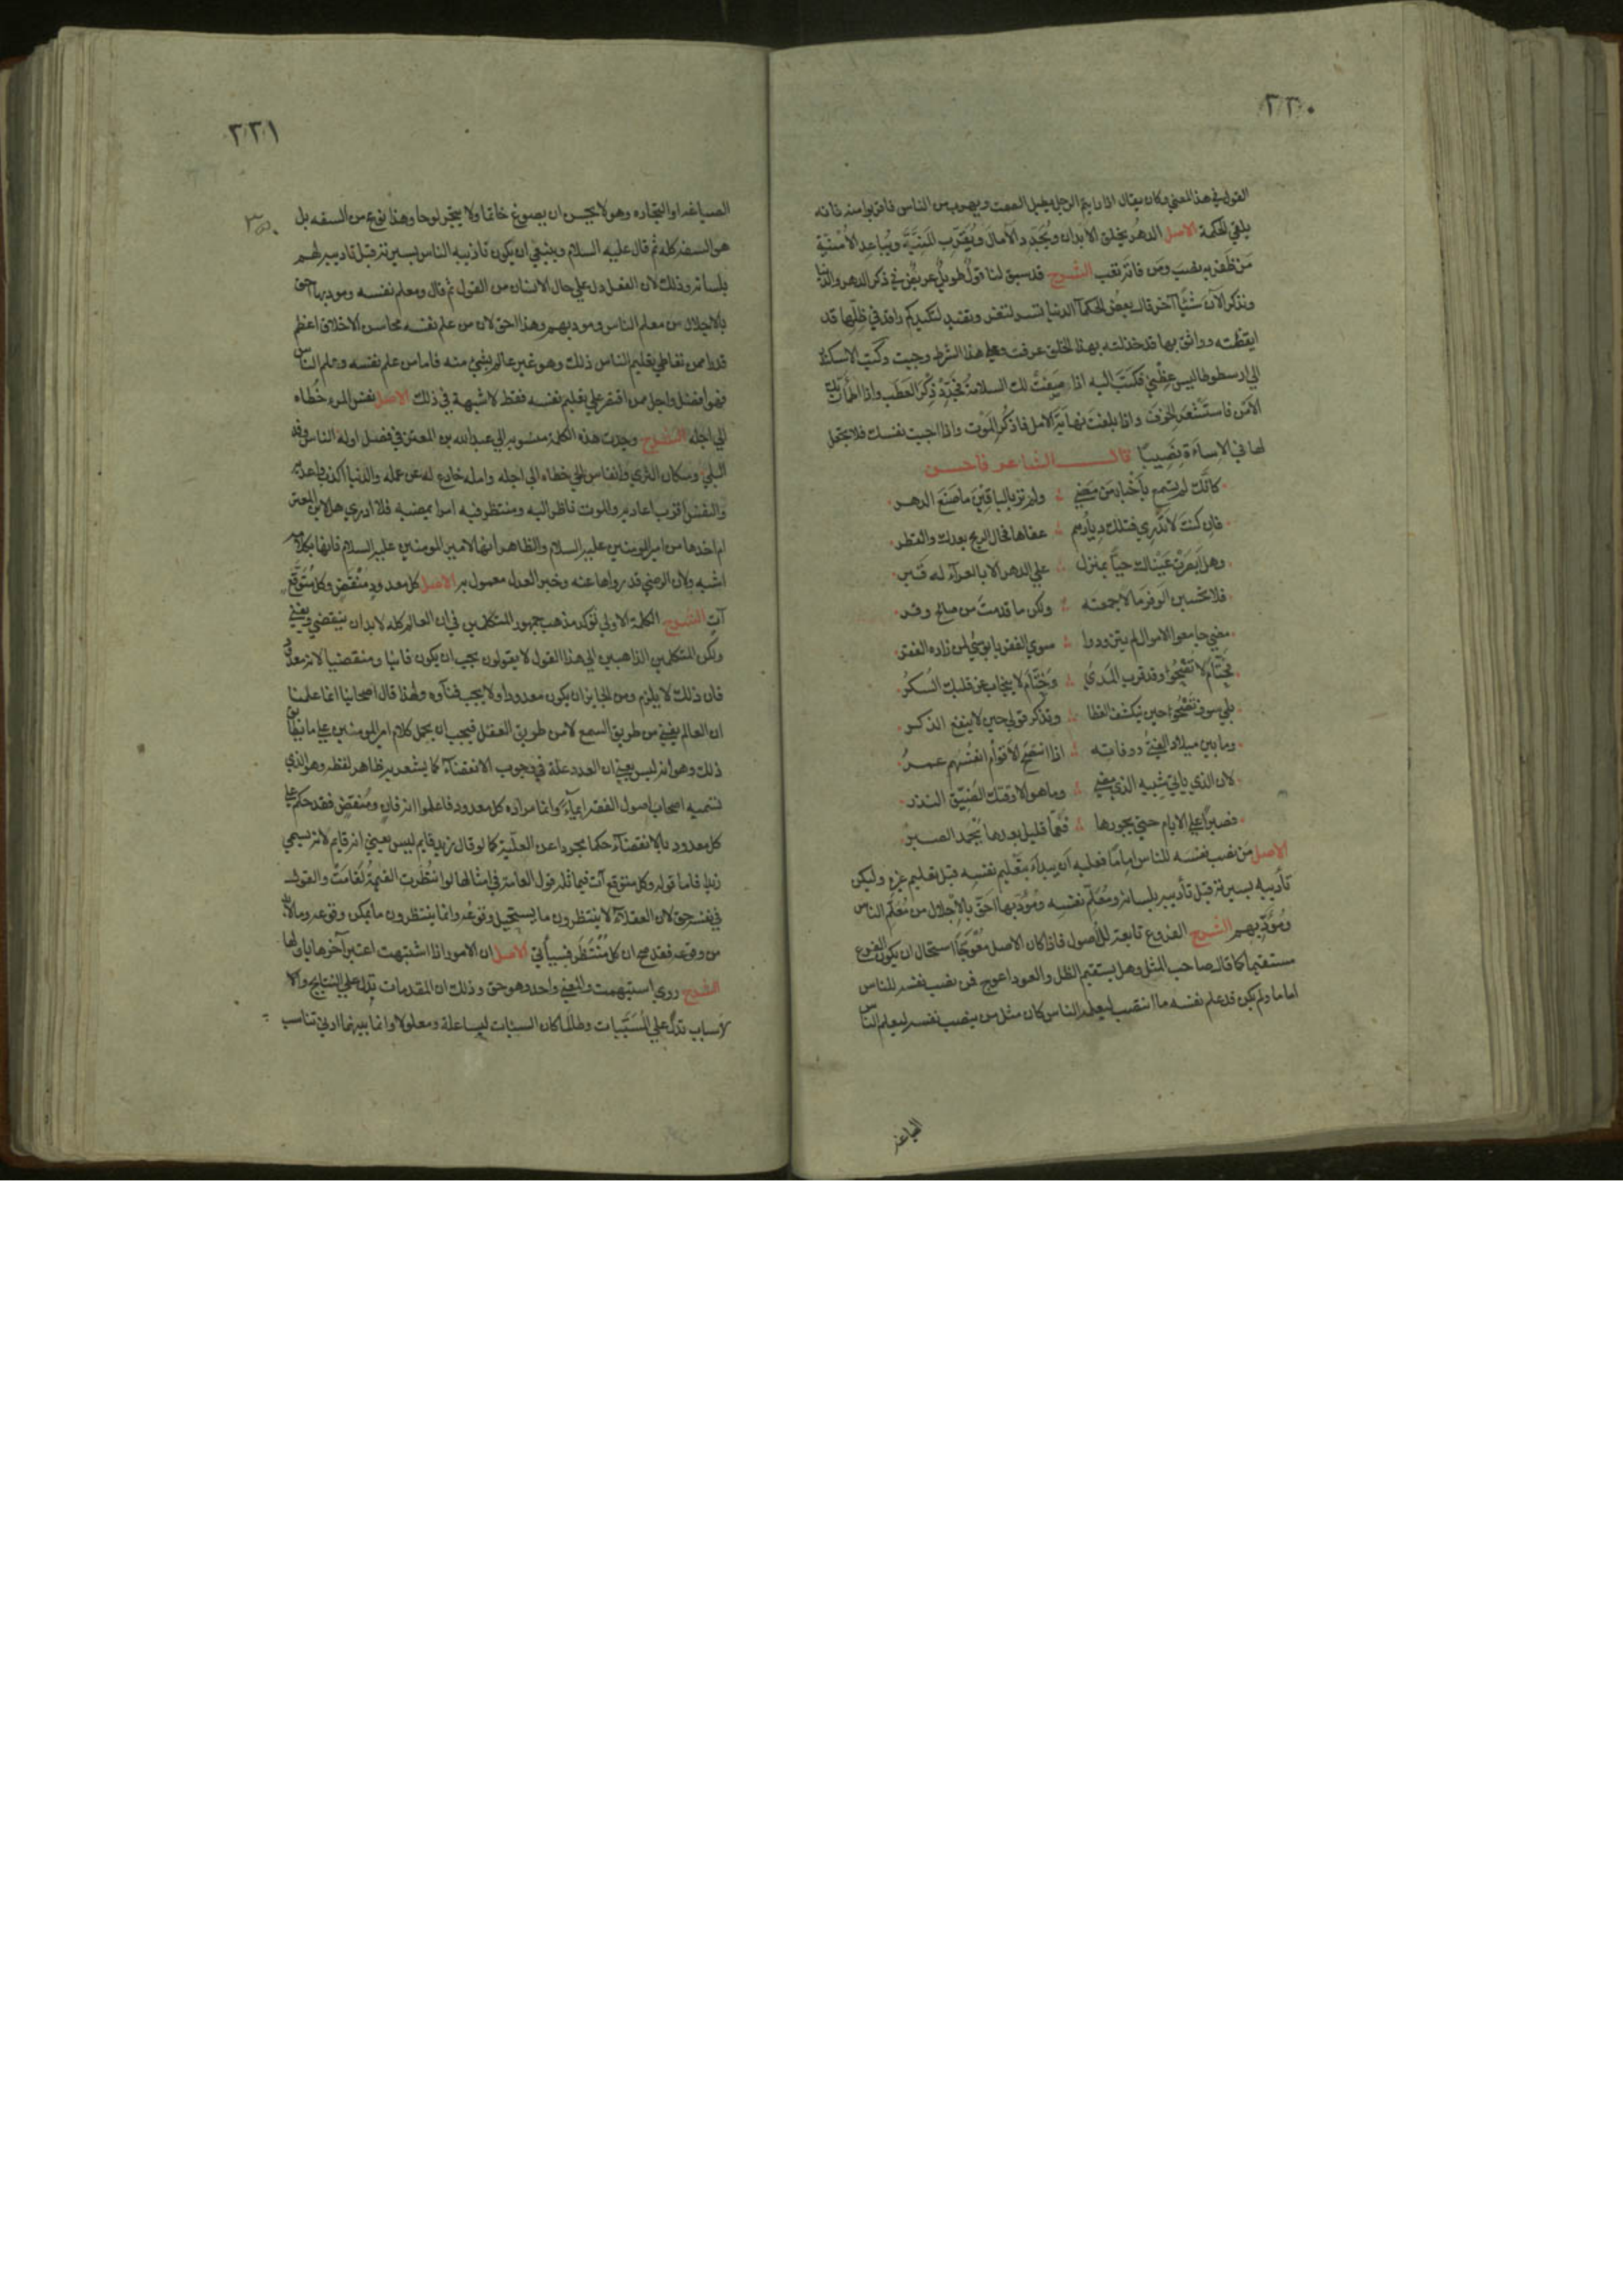 ٢٢٠
القول في هذا المعني وكان يقال اذا رايتم الرجل يطيل الصمت ويهرب من الناس فاقربوا منه فانه
يلقي الحكمة الاصل الدهر يخلق الأبدان ويُجَدِّد الآمال ويُقَرِّب المَنِيَّةَ ويُباعِد الأُمْنيَّةَ
مَن ظَفِرَ به نصِبَ ومَن فاتَه تَعِب الشرح قد سبق لنا قولٌ طويلٌ عريضٌ في ذكر الدهر والدنيا
ونذكر الآن شَيْئًا آخر قال بعضُ الحكمآ الدنيا تسر لتغر وتفيد لتكيد كم راقد في ظلّها قد
ايقظته وواثق بها قد خذلته بهذا الخلق عرفت وعلي هذا الشرط وحبت وكتب الاسكندر
الي ارسطوطاليس عِظْني فكَتَبَ اليه اذا صَفَتْ لك السلامةُ فجَدِّدْ ذِكْرَ العَطَب واذا اطمأنّ بك
الأمْن فاستَشْعَر الخوفَ واذا بلغتَ نهايَةَ الامل فاذكُر المَوْت واذا احببت نفسك فلا تجعل
لها في الإساءَة نَصِيبًا قال الشاعر فاحسن
كانَّكَ لم تسمع بأَخْبار مَن مَضي ؞ ولم تر بالباقِينَ ما صَنَعَ الدهر
فإن كنتَ لا تَدْري فتلك ديارُهم ؞ عفاها محال الريح بعدك والقطر
وهل أَبْصَرَتْ عَيْناك حيًّا بمنزل ؞ علي الدهر الا بالعرآء له قَبر
فلا تحسبن الوَفرَ مالا جمعته ؞ ولكن ما قدمتَ من صالح وفر
مضي جامعوا الاموال لم يتزودوا ؞ سوي الفقر يا بؤسي لمن زاده الفقر
فحتّامَ لا تَصْحُوا وقد قرب المَدَيُ ؞ وحُتّامَ لا ينجاب عن قلبك السُكرُ
بلي سوف تَصْحُوا حين ينكشف الغطا ؞ وتذكر قولي حين لا ينفع الذكر
وما بين ميلاد الفتيَ ووفاته ؞ اذا انتصَحَ الأقوامُ انفُسَهم عمرُ
لان الذي ياتي شبيه الذي مضي ؞ وما هو الا وقتك الضَيّق النزر
فصبرًا علي الايام حتي تجوزها ؞ فعَمّا قليل بعدها يُحمَد الصبرُ
الاصل مَن نصب نفسَه للناس إمامًا فعليه أن يبدأَ بتَعْليم نفسِه قبل تعليم غيره وليكن
تأدِيبه بسيرته قبل تأديبه بلسانه ومُعَلِّم نفسِه ومُؤدّبها احَقّ بالإجلال من مُعَلّم الناس
ومُؤدّبهم الشرح الفروع تابعة للأصول فاذا كان الاصل مُعْوَجًّا استحال ان يكون الفرع
مستقيما كما قال صاحب المثل وهل يستقيم الظل والعود اعوج فمن نصب نفسه للناس
اماما ولم يكن قد علم نفسه ما انتصب ليعلمه الناس كان مثل من ينصب نفسه ليعلم الناس
الصياغه
٢٢١
الصياغه او النجاره وهو لا يحسن ان يصوغ خاتما ولا ينجر لوحا وهذا نوع من السفه بل
هو السفه كله ثم قال عليه السلام وينبغي ان يكون تاديبه الناس بسيرته قبل تاديبه لهم
بلسانه وذلك لان الفعل دل علي حال الانسان من القول ثم قال ومعلم نفسه ومودبها احق
بالاجلال من معلم الناس ومودبهم وهذا احق لان من علم نفسه محاسن الاخلاق اعظم
قدرا ممن تعاطي تعليم الناس ذلك وهو غير عالم بشي منه فاما من علم نفسه وعلم الناس
فهو افضل واجل ممن اقتصر علي تعليم نفسه فقط لا شبهة في ذلك الاصل نفس المرء خُطاه
الي اجله الشرح وجدت هذه الكلمة منسوبه الي عبدالله بن المعتز في فصل اوله الناس وفد
البلي وسكان الثري وانفاس الحي خطاه الي اجله وامله خادع له عن عمله والدنيا اكذب واعديه
والنفس اقرب اعاديه والموت ناظر اليه ومنتظر فيه امرا يمضيه فلا ادري هل هي لابن المعتز
ام اخذها من امير المومنين عليه السلام والظاهر انها لامير المومنين عليه السلام فانها بكلامه
اشبه ولان الرضي قد رواها عنه وخبر العدل معمول به الاصل كل معدودٍ مُنْقَضٍ وكل مُتَوَقَّع
آتٍ الشرح الكلمة الاولي تؤكد مذهب جمهور المتكلمين في ان العالم كله لا بد ان ينقضي ويفني
ولكن المتكلمين الذاهبين الي هذا القول لا يقولون يجب ان يكون فانيا ومنقضيا لانه معدود
فان ذلك لا يلزم ومن الجايز ان يكون معدودا ولا يجب فنآوه ولهذا قال اصحابنا انما علمنا
ان العالم يفني من طريق السمع لا من طريق العقل فيجب ان يحمل كلام امير المومنين علي ما يطابق
ذلك وهو انه ليس يعني ان العدد علة في وجوب الانقضآء كما يشعر به ظاهر لفظه وهو الذي
تسميه اصحاب اصول الفقه ايمآءً وانما مراده كل معدود فاعلموا انه فانٍ ومُنقضٍ فقد حكم علي
كل معدود بالانقضآء حكما مجردا عن العلّية كما لو قال زيد قايم ليس يعني انه قايم لانه يسمي
زيدا فاما قوله وكل متوقع آت فيماثله قول العامة في امثالها لو انتُظِرت القيمةُ لَقامَتْ والقول
في نفسه حق لان العقلآء لا ينتظرون ما يستحيل وقوعُه وانما ينتظرون ما يمكن وقوعه وما لا بد
من وقوعه فقد صح ان كل مُنْتَظَر فسيأتي الاصل ان الامور اذا اشتبهت اعتبر آخرها باولها
الشرح روي استبهمت والمعني واحد وهو حق وذلك ان المقدمات تدل علي النتايج والا
لأسباب تدلُّ علي المُسَبَّبات وطالما كان السيئات ليسا علة ومعلولا وانما بينهما ادني تناسب